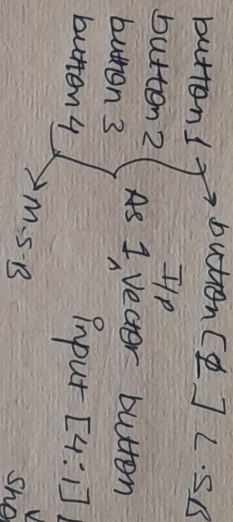 button 1 → button [1] L.S.B
button 2
button 3
button 4 → M.S.B
As 1 I/P vector button
input [4:1]